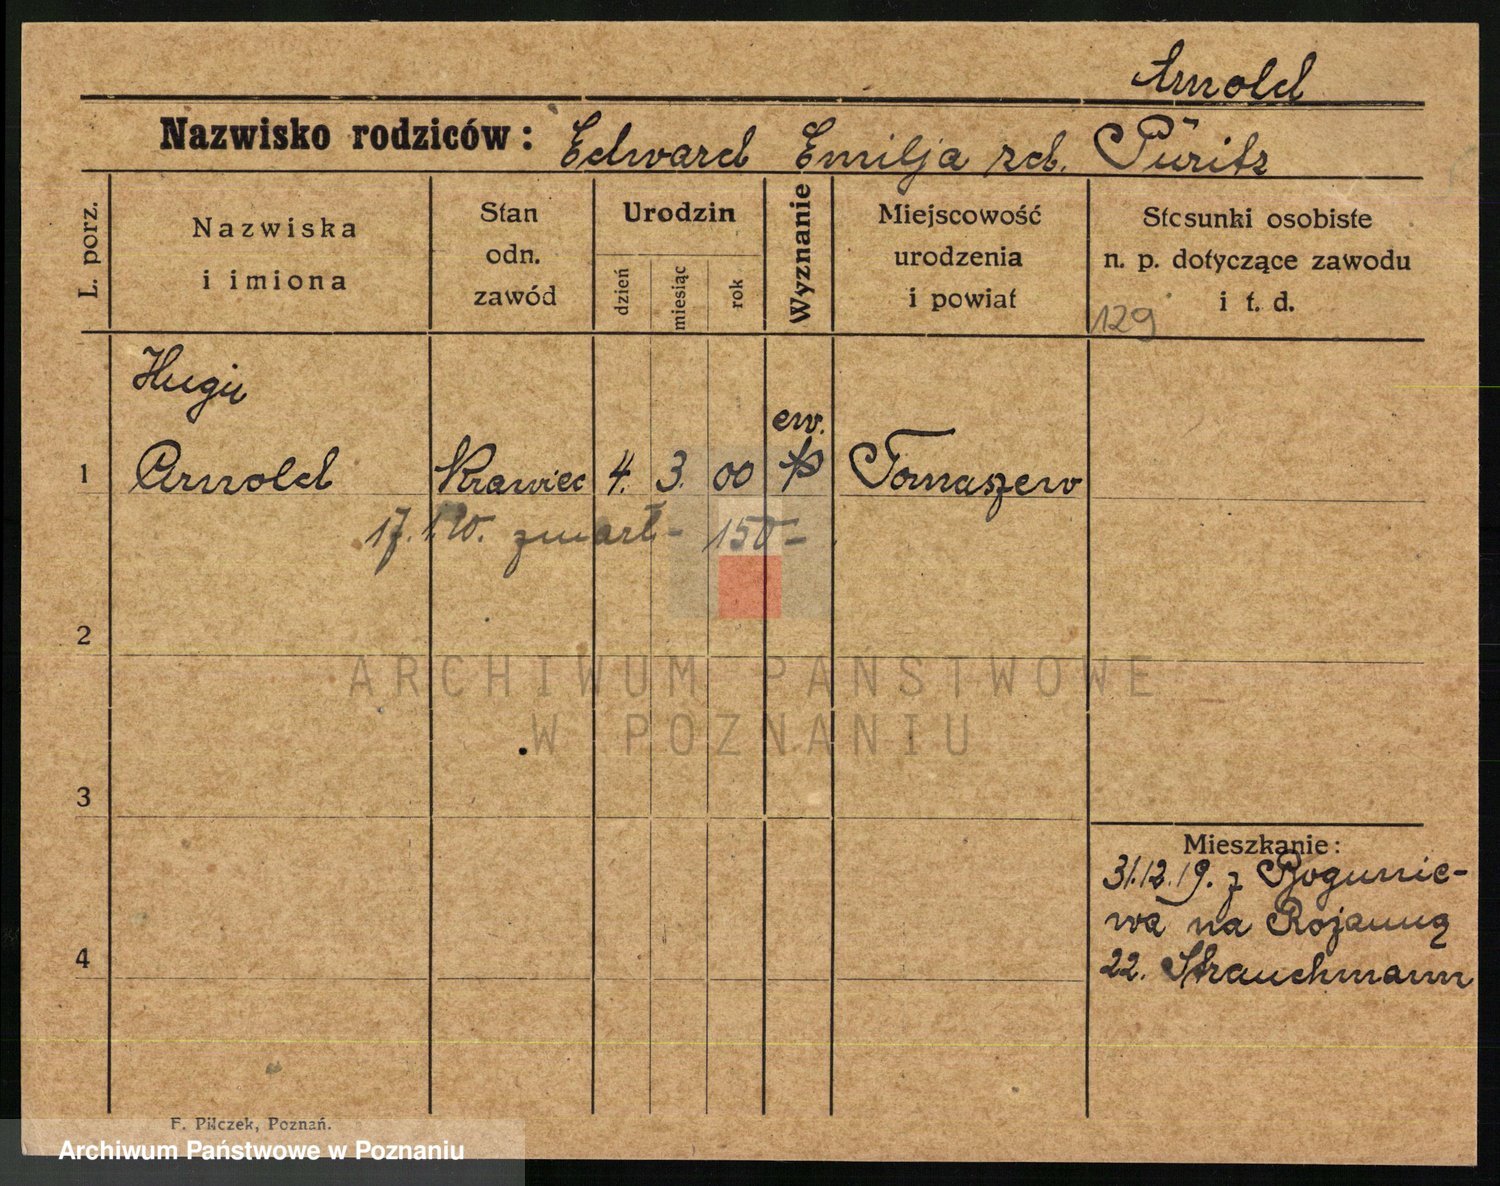 Arnold
Nazwisko rodziców: Edward Emilja rcb. Püritz
L. porz.
Nazwiska
i imiona
Stan
odn.
zawód
Urodzin
dzień
miesiąc
rok
Wyznanie
Miejscowość
urodzenia
i powiat
Stosunki osobiste
n. p. dotyczące zawodu
i t. d.
129
Hugo
ew.
1 Arnold Krawiec 4. 3. 00 Tomaszew
17. 1. 20. zmarł - 150 -
2
ARCHIWUM PAŃSTWOWE
W POZNANIU
3
Mieszkanie:
31.12.19. z Bogunie-
wa na Rojanną
4
22. Strauchmann
F. Pilczek, Poznań.
Archiwum Państwowe w Poznaniu